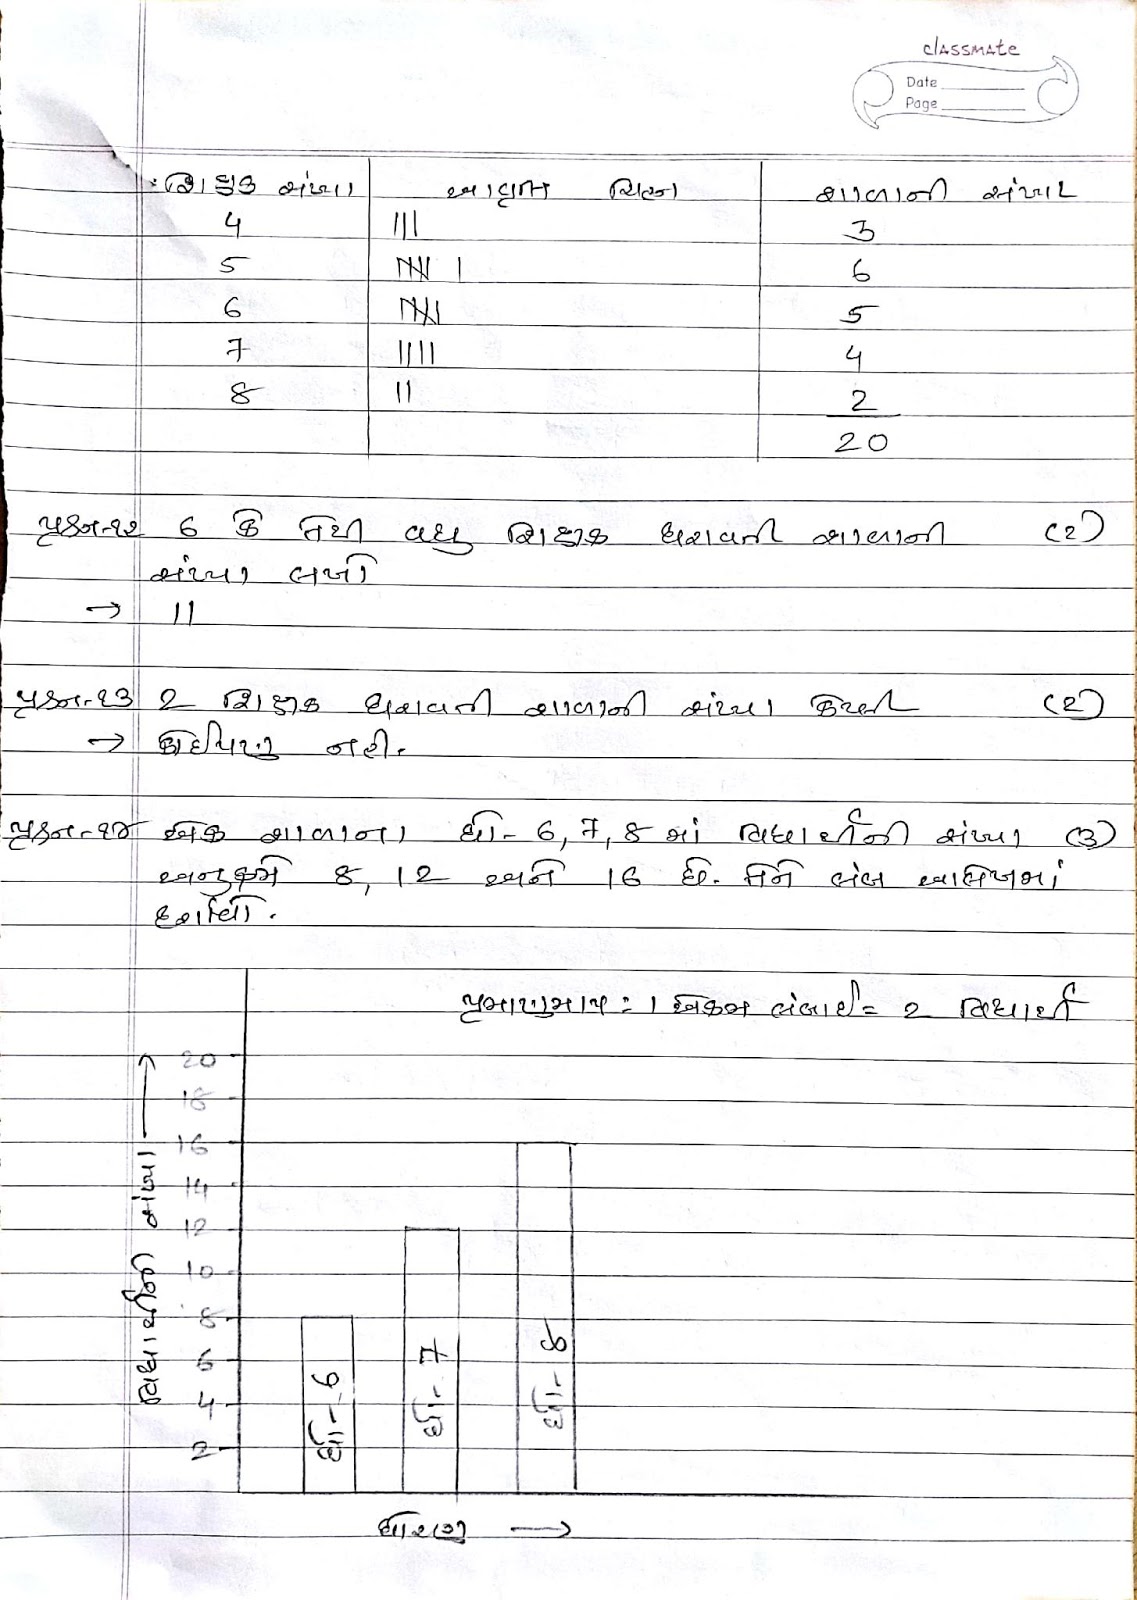 classmate
Date
Page
શિક્ષક સંખ્યા આવૃત્ત ચિહ્ન શાળાની સંખ્યા
4 ||| 3
5 |||| | 6
6 |||| 5
7 |||| 4
8 || 2
20
પ્રશ્ન-૧૨ 6 કે તેથી વધુ શિક્ષક ધરાવતી શાળાની (૨)
સંખ્યા લખો
→ 11
પ્રશ્ન-૧૩ 2 શિક્ષક ધરાવતી શાળાની સંખ્યા કેટલી (૨)
→ એકપણ નહી.
પ્રશ્ન-૧૪ એક શાળાના ધો- 6, 7, 8 માં વિદ્યાર્થીની સંખ્યા (૩)
અનુક્રમે 8, 12 અને 16 છે. તેને લંબ આલેખમાં
દર્શાવો.
પ્રમાણમાપ : 1 એકમ લંબાઈ = 2 વિદ્યાર્થી
20
18
16
14
12
10
8
6
4
2
વિદ્યાર્થીની સંખ્યા →
ધો- 6
ધો- 7
ધો- 8
ધોરણ →